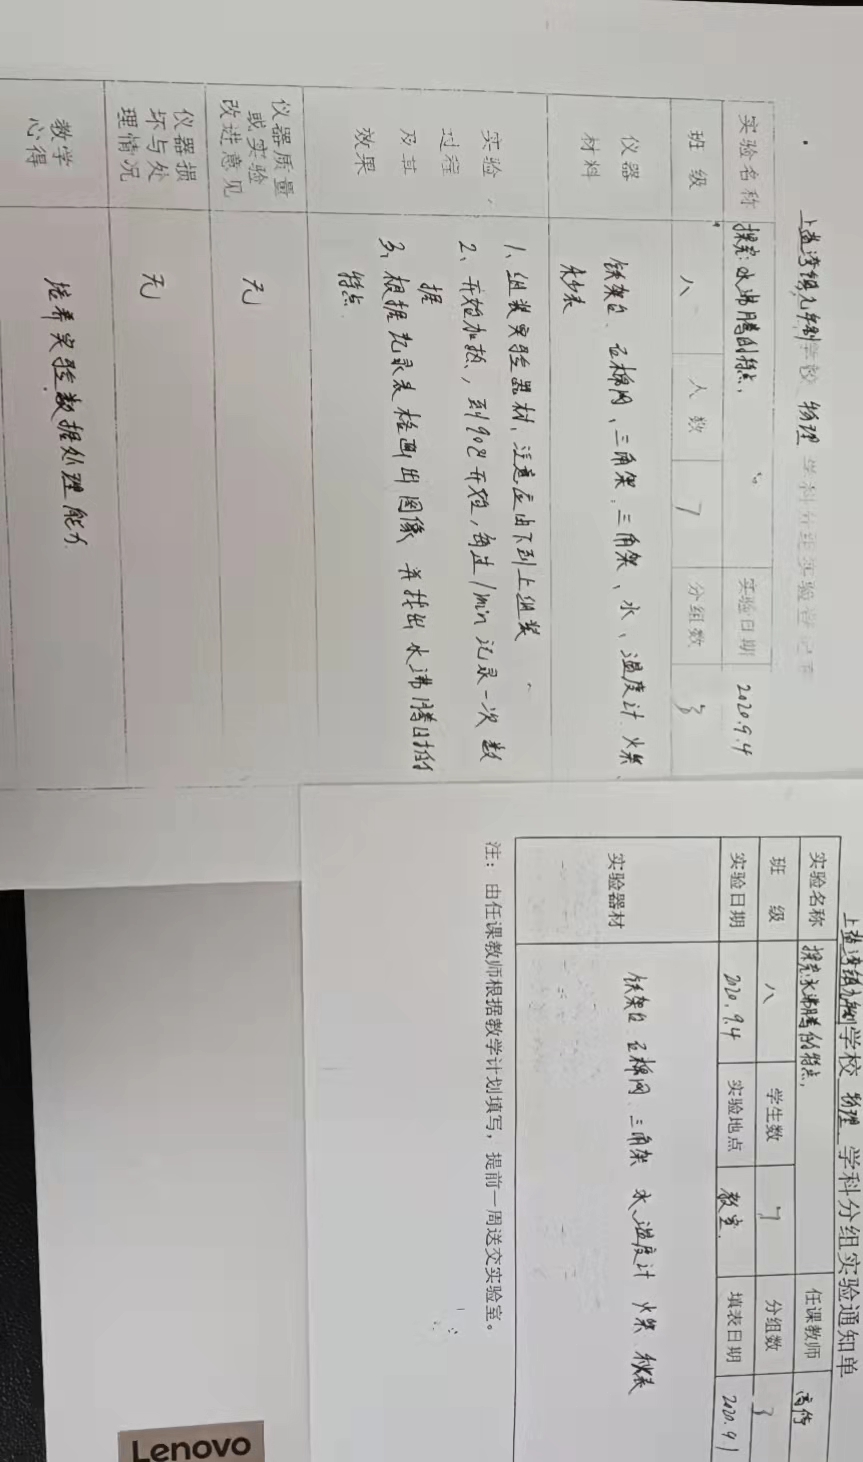 上盐湾镇九年制学校 物理 学科分组实验登记表
实验名称 探究:水沸腾的特点, 实验日期 2020.9.4
班 级 八 人 数 7 分组数 3
仪器材料 铁架台、石棉网、三角架、三角架、水、温度计、火柴、
秒表
实验过程及其效果 1、组装实验器材,注意应由下到上组装
2、开始加热,到90℃开始,每过1min记录一次数
据
3、根据记录表格画出图像 并找出水沸腾时的
特点.
仪器质量或实验改进意见 无
仪器损坏与处理情况 无
教学心得 培养实验数据处理能力.
上盐湾镇九年制学校 物理 学科分组实验通知单
实验名称 探究:水沸腾的特点, 任课教师
班 级 八 学生数 7 分组数 3
实验日期 2020.9.4 实验地点 教室. 填表日期 2020.9.1
实验器材 铁架台 石棉网 三角架 水 温度计 火柴 秒表
注:由任课教师根据教学计划填写,提前一周送交实验室。
Lenovo